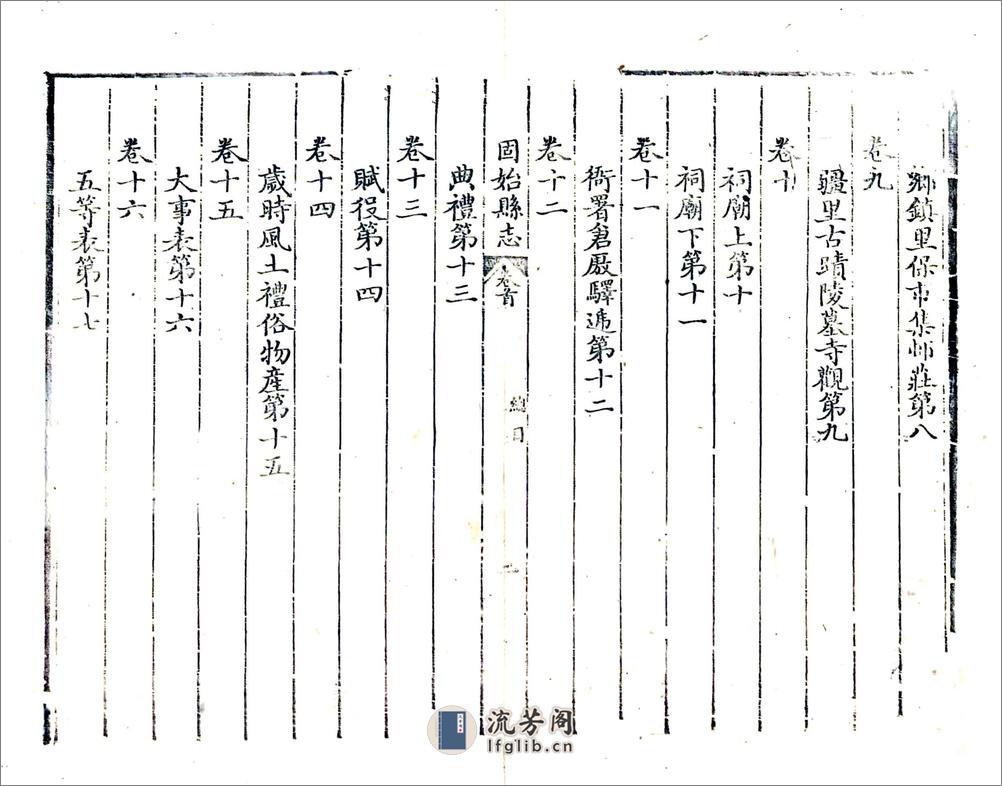 鄉鎮里保市集邨莊第八
卷九
疆里古蹟陵墓寺觀第九
卷十
祠廟上第十
祠廟下第十一
卷十一
衙署倉厫驛逓第十二
卷十二
固始縣志
卷首
總目
一
典禮第十三
卷十三
賦役第十四
卷十四
歲時風土禮俗物產第十五
卷十五
大事表第十六
卷十六
五等表第十七
流芳阁
lfglib.cn